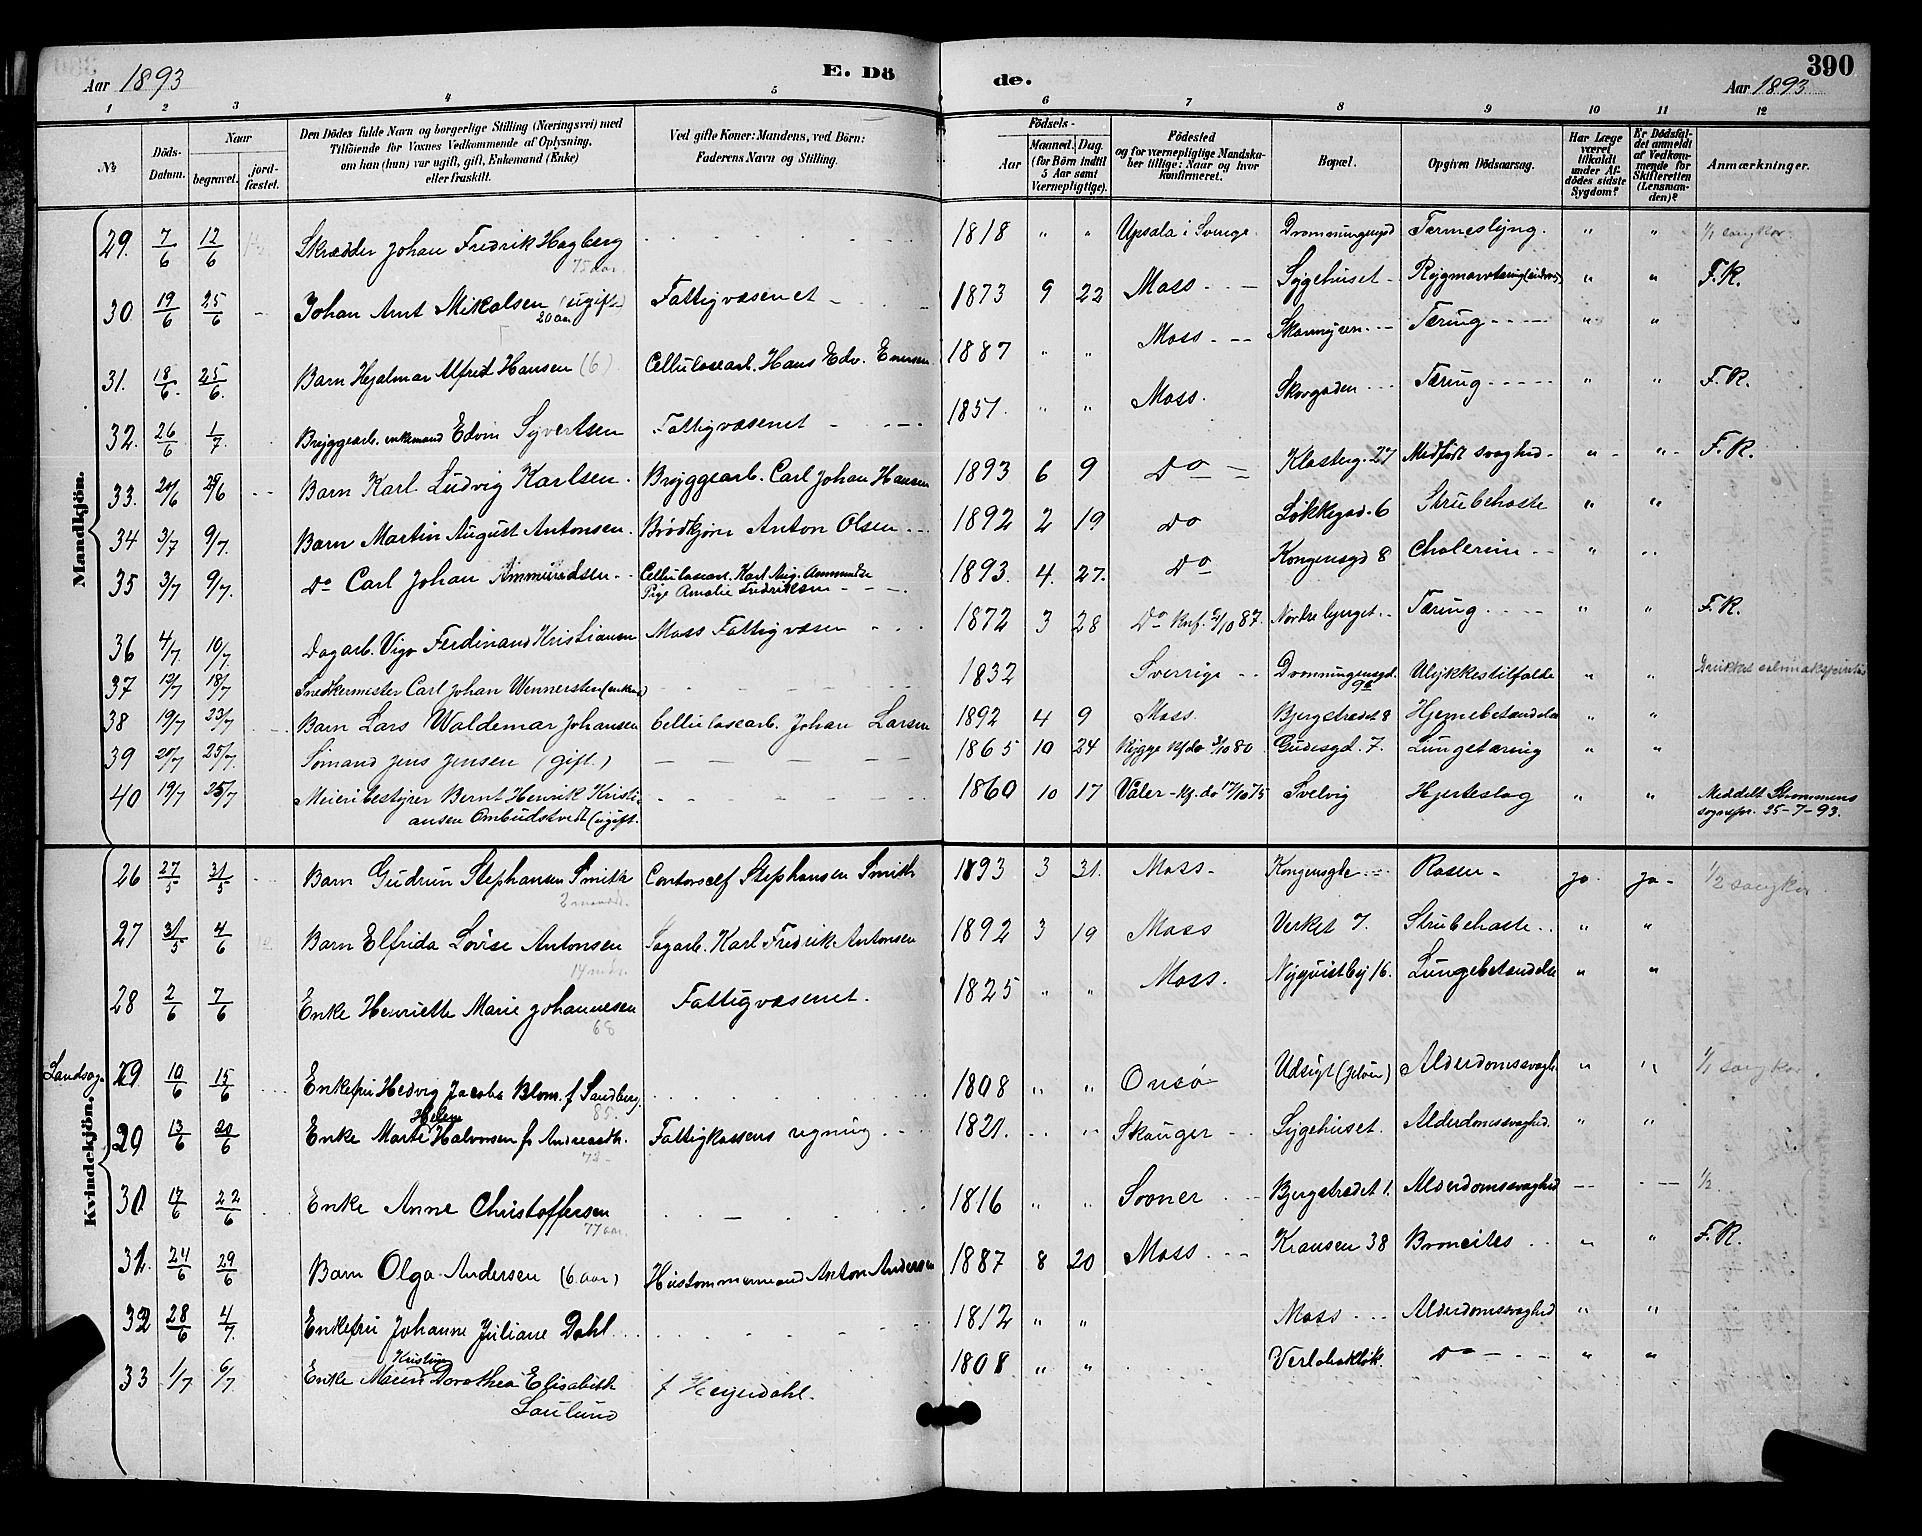 Aar 1893 E. Dö de. Aar 1893 390
1 2 3 4 5 6 7 8 9 10 11 12
№ Döds-Datum. Naar begravet. jordfæstet. Den Dödes fulde Navn og borgerlige Stilling (Næringsvei) med Tilföiende for Voxnes Vedkommende af Oplysning, om han (hun) var ugift, gift, Enkemand (Enke) eller fraskilt. Ved gifte Koner: Mandens, ved Börn: Faderens Navn og Stilling. Födsels- Aar Maaned. Dag. (for Börn indtil 5 Aar samt Værnepligtige). Födested og for værnepligtige Mandskaber tillige: Naar og hvor konfirmeret. Bopæl. Opgiven Dödsaarsag. Har Læge været tilkaldt under Afdödes sidste Sygdom? Er Dödsfaldet anmeldt af Vedkommende for Skifteretten (Lensmanden)? Anmærkninger.
Mandkjön.
29. 7/6 12/6 Skrædder Johan Fredrik Hagberg 75 aar. 1818 " " Upsala i Sverige Dronningensgd Tarmeslyng. " " 1/1 sangkor.
30. 19/6 25/6 Johan Arnt Mikalsen (ugift) 20 aar Fattigvæsenet 1873 9 22 Moss Sygehuset " " F.R.
31. 18/6 25/6 Barn Hjalmar Alfred Hansen (6) Cellulosearb. Hans Edv. Enersen 1887 " " Moss Skarmyren Tæring " "
32. 26/6 1/7. Bryggearb. enkemand Edvin Syvertsen Fattigvæsenet 1851. " " Moss. Skovgaden Tæring " " F.R.
33. 24/6 29/6 Barn Karl Ludvig Karlsen Bryggearb. Carl Johan Hansen 1893 6 9 Do Klosterg. 27 Medfødt svaghed " " F.R.
34 3/7 9/7. Barn Martin August Antonsen. Brödkjører Anton Olsen 1892 2 19 Do Løkkegad. 6 Strubehoste " "
35 3/7 9/7. Do Carl Johan Ammundsen Cellulosearb. Karl Aug. Ammundse Pige Amalie Fredriksen 1893. 4. 27. Do Kongensgd 8 Cholerine " "
36 4/7. 10/7 Dagarb. Vigo Ferdinand Kristiansen Moss Fattigvæsen 1872 3 28 Do Knf. 2/10 87. Nordre byerget Tæring " " F.R.
37 12/7 18/7 Snedkermester Carl Johan Wennersten (enkem) 1832 Sverrige Dronningensgd. 96 Ulykkestilfælde " " Drukket salmiakspiritus
38 19/7 23/7 Barn Lars Waldemar Johansen Cellulosearb. Johan Larsen 1892 4 9 Moss. Bjergstrædet 8 Hjernebetændelse " "
39 20/7 25/7. Sömand Jens Jensen (gift.) 1865 10 24 Rygge Kf do 3/10 80. Gudesgd. 7. Lungetæring " "
40 19/7 25/7 Meieribestyrer Bernt Henrik Kristiansen Ombudstvedt (ugift. 1860 10 17 Vaaler - Kf. do 17/10 75 Svelvig Hjerteslag " " Meddelt Strømmens sognepr. 25-7-93.
Kvindekjön.
26 27/5 31/5 Barn Gudrun Stephansen Smith 2 maaned. Contorchef Stephansen Smith 1893 3 31. Moss. Kongensgde Rosen ja. ja 1/2 sangkor.
27 31/5 4/6 Barn Elfrida Lovise Antonsen 14 mdr. Sagarb. Karl Fredrik Antonsen 1892 3 19 Moss Verket 7. Strubehoste " "
28 2/6 7/6 Enke Henriette Marie Johannesen 68 Fattigvæsenet. 1825 " " Moss. Nyquistby 16. Lungebetændelse " "
Landsog. 29. 10/6 15/6 Enkefru Hedvig Jacobe Blom f Sandberg. 85. 1808 " " Onsø Udsigt (Jeløen) Alderdomssvagh. " " 1/1 sangkor.
29 13/6 20/6 Enke Marte Helene Halvorsen f. Andreasdt. 72 Fattigkassens regning 1821. " " Skauger Sygehuset. Alderdomssvaghed. " "
30 17/6 22/6 Enke Anne Christoffersen 77 aar. 1816 " " Sooner Bjergstrædet 1. Alderdomssvaghed 1/2
31. 24/6 29/6 Barn Olga Andersen (6 aar) Hustømmermand Anton Andersen 1887 8 20 Moss Kransen 38 Broncites " " F.R.
32 28/6 4/7 Enkefru Johanne Juliane Dahl 1812 " " Moss Alderdomssvaghed " "
33 1/7 6/7 Enke Maren Kristine Dorothea Elisabeth Laulund f Heyerdahl. 1808 " " Do " "